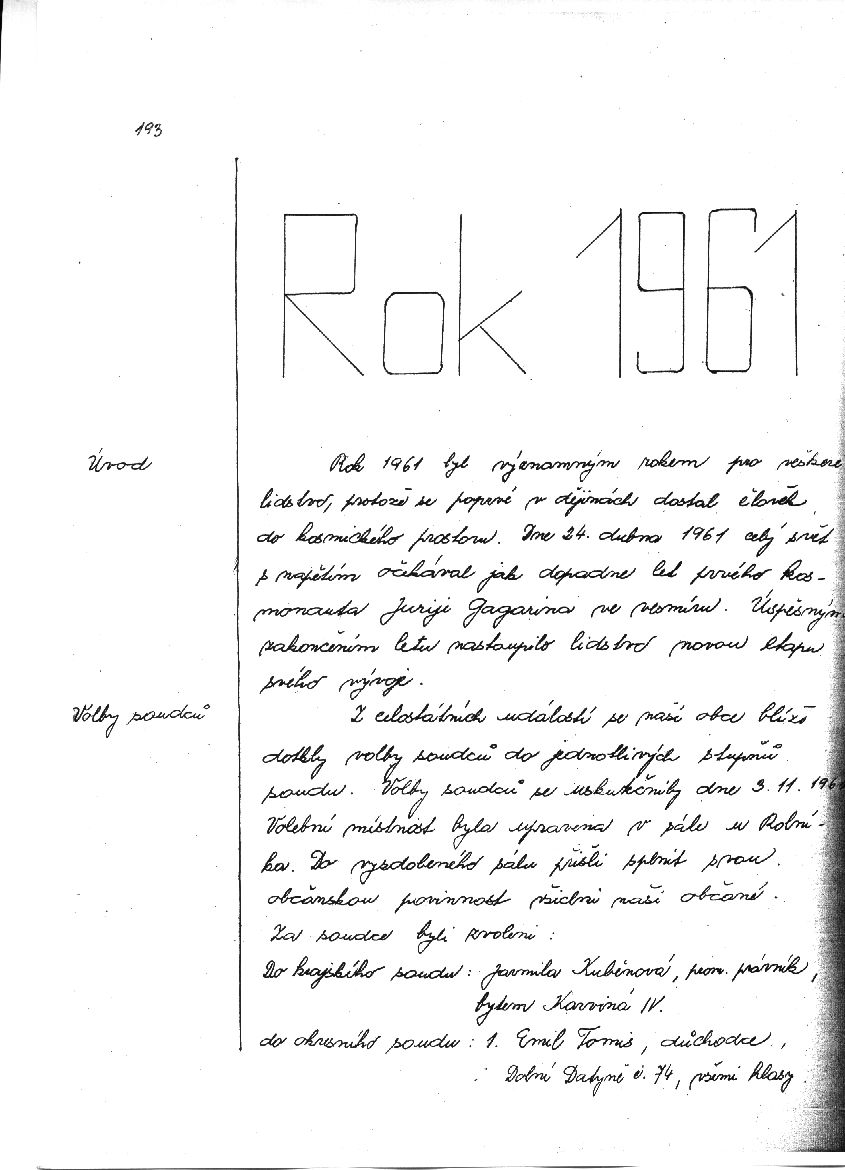 193
Rok 1961
Úvod
Rok 1961 byl významným rokem pro veškeré
lidstvo, protože se poprvé v dějinách dostal člověk
do kosmického prostoru. Dne 24. dubna 1961 celý svět
s napětím očekával jak dopadne let prvého kos-
monauta Jurije Gagarina ve vesmíru. Úspěšným
zakončením letu nastoupilo lidstvo novou etapu
svého vývoje.
Volby soudců
Z celostátních událostí se naší obce blíže
dotkly volby soudců do jednotlivých stupňů
soudu. Volby soudců se uskutečnily dne 3. 11. 196
Volební místnost byla upravena v sále u Rolní-
ka. Do vyzdobeného sálu přišli splnit svou
občanskou povinnost všichni naši občané.
Za soudce byli zvoleni :
Do krajského soudu : Jarmila Kuběnová, prom. právník,
bytem Karviná IV.
do okresního soudu : 1. Emil Tomis, důchodce,
Dolní Datyně č. 74, všemi hlasy